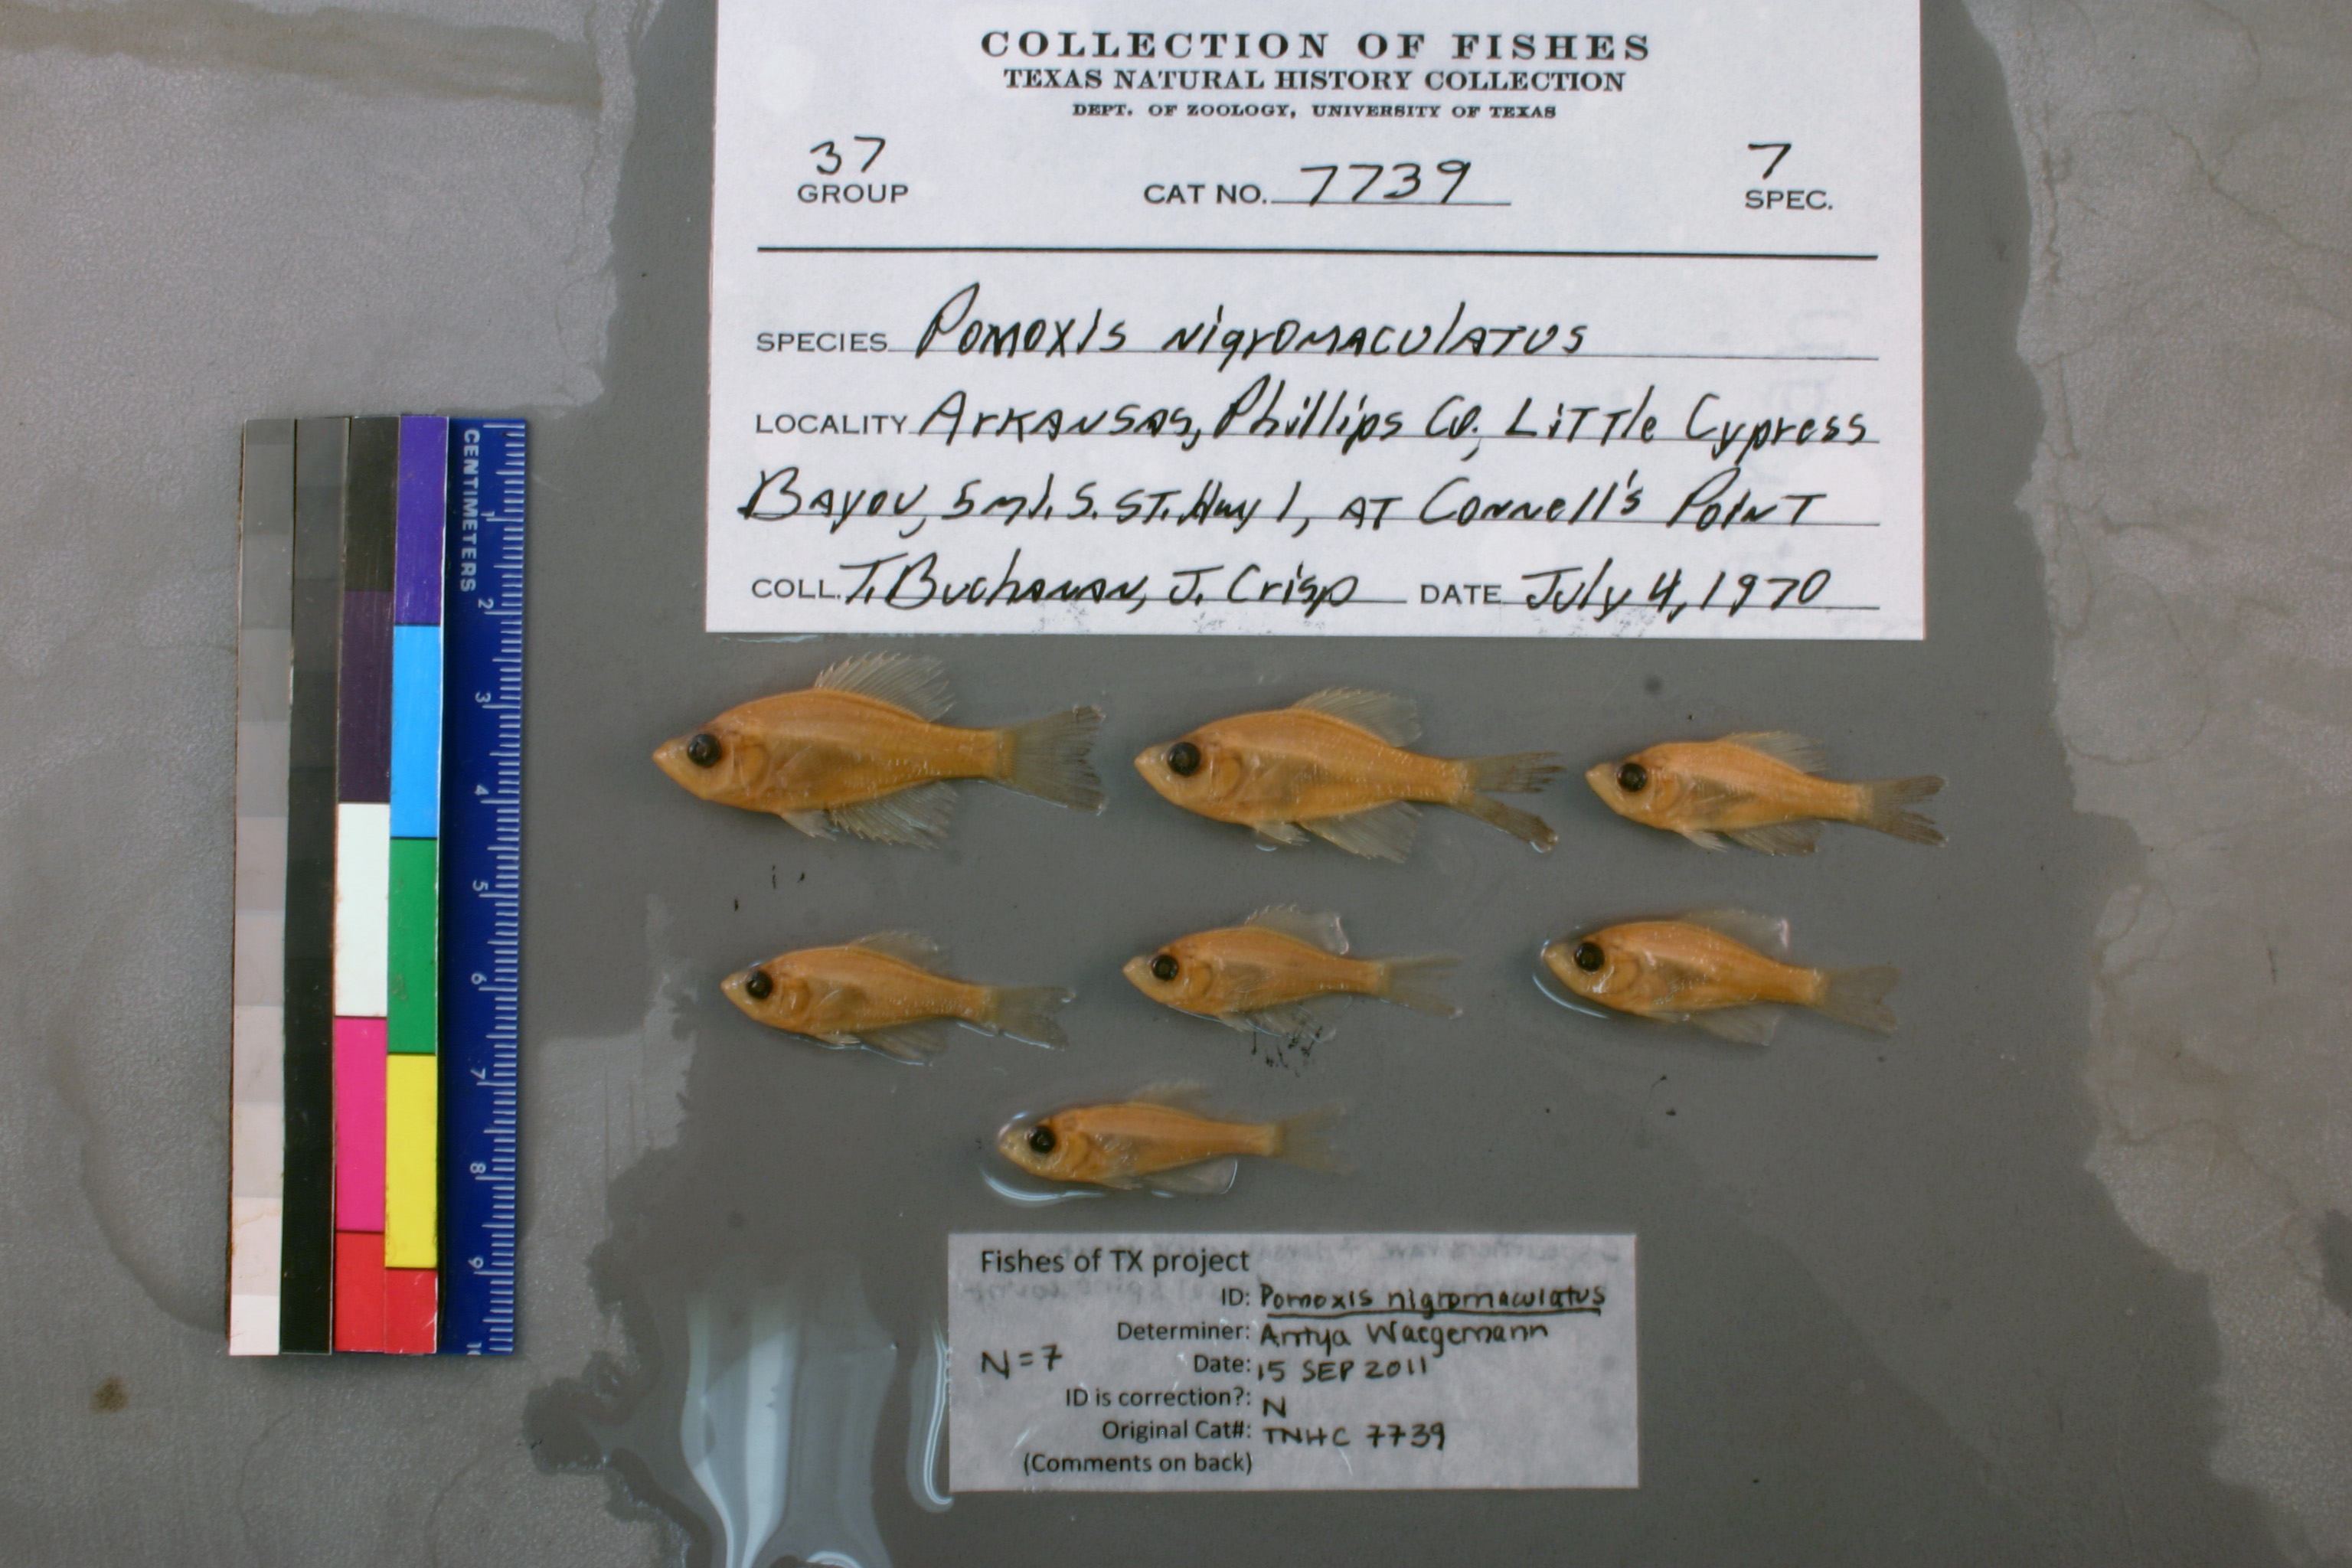 COLLECTION OF FISHES
TEXAS NATURAL HISTORY COLLECTION
DEPT. OF ZOOLOGY, UNIVERSITY OF TEXAS
37 7739 7
GROUP CAT NO. SPEC.
SPECIES Pomoxis nigromaculatus
LOCALITY Arkansas, Phillips Co., Little Cypress
Bayou, 5 mi. S. St. Hwy 1, at Connell's Point
COLL. T. Buchanan, J. Crisp DATE July 4, 1970
CENTIMETERS
1
2
3
4
5
6
7
8
9
Fishes of TX project
ID: Pomoxis nigromaculatus
Determiner: Amya Waegemann
N=7 Date: 15 SEP 2011
ID is correction?: N
Original Cat#: TNHC 7739
(Comments on back)